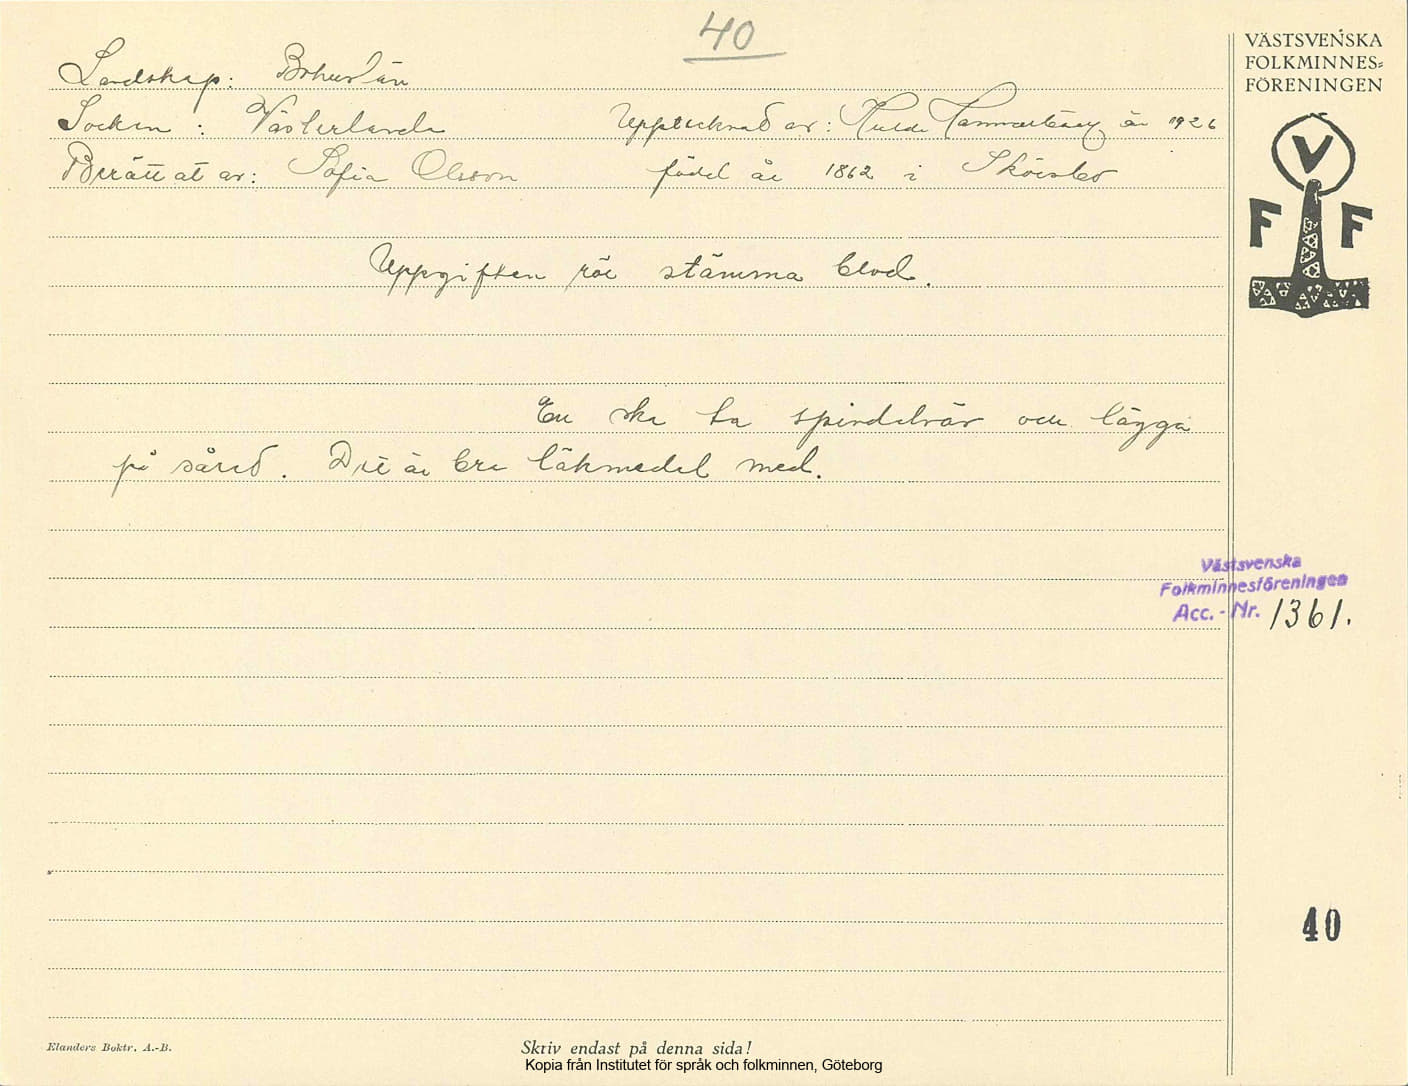 40
VÄSTSVENSKA
FOLKMINNES=
FÖRENINGEN
Landskap: Bohuslän
Socken: Västerlanda Upptecknad av: Hulda Hammarbäck år 1926
Berättat av: Sofia Olsson född år 1862 i
V
F F
Uppgiften rör stämma blod.
En ska ta spindelväv och lägga
på såred. Det är bra läkmedel med.
Västsvenska
Folkminnesföreningen
Acc. - Nr. 1361.
40
Elanders Boktr. A.-B.
Skriv endast på denna sida!
Kopia från Institutet för språk och folkminnen, Göteborg